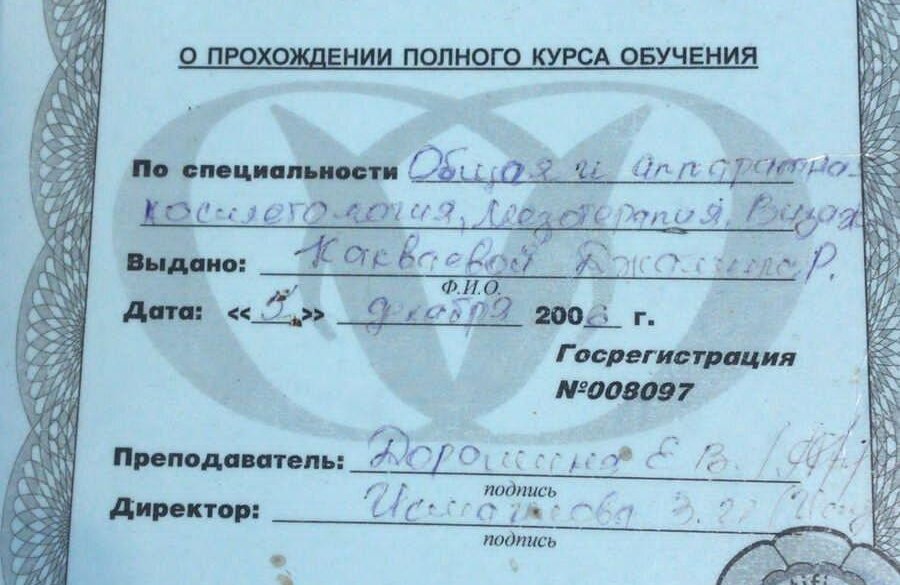 О ПРОХОЖДЕНИИ ПОЛНОГО КУРСА ОБУЧЕНИЯ
По специальности Общая и аппаратна-
косметология, Мезотерапия, Визаж
Выдано: Какваевой Р.
Ф.И.О.
Дата: «5» декабря 2006 г.
Госрегистрация
№008097
Преподаватель: Дорошина Е В.
подпись
Директор:
подпись